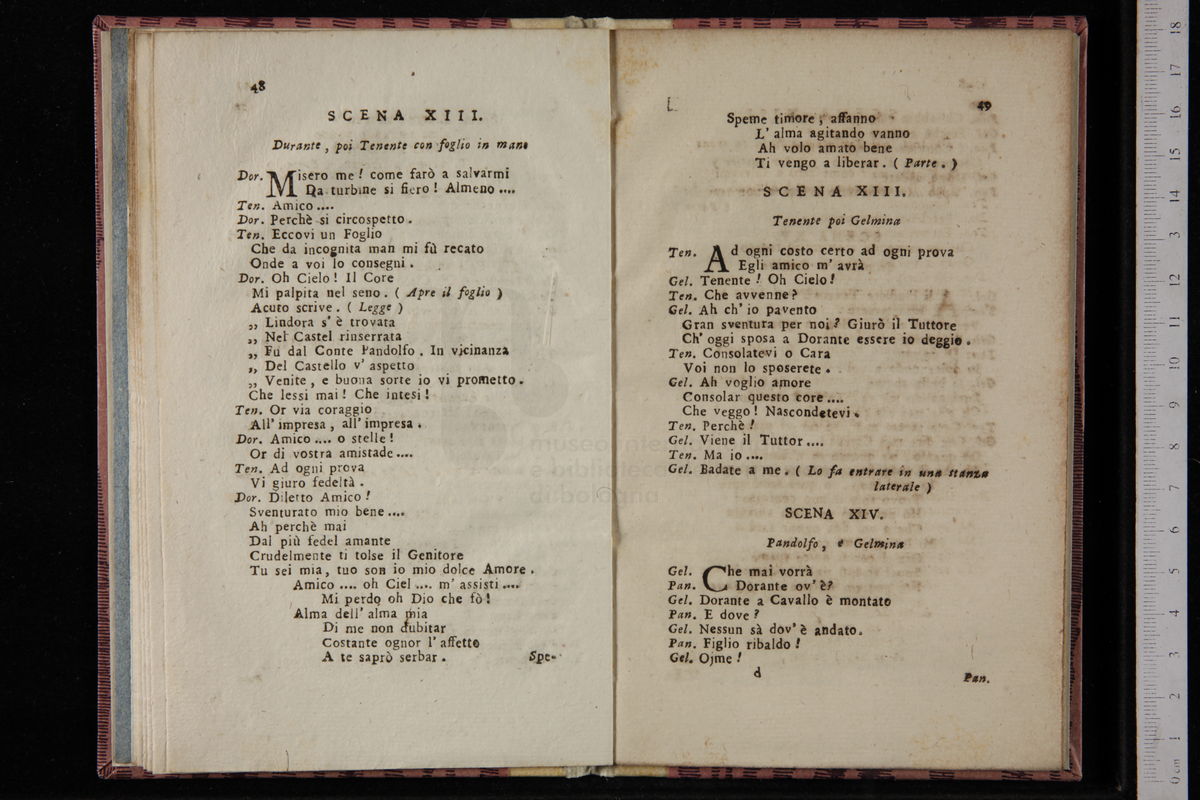 48
SCENA XIII.
Durante, poi Tenente con foglio in mano
Dor. Misero me! come farò a salvarmi
Da turbine si fiero! Almeno ....
Ten. Amico ....
Dor. Perchè si circospetto.
Ten. Eccovi un Foglio
Che da incognita man mi fù recato
Onde a voi lo consegni.
Dor. Oh Cielo! Il Core
Mi palpita nel seno. ( Apre il foglio )
Acuto scrive. ( Legge )
„ Lindora s' è trovata
„ Nel Castel rinserrata
„ Fu dal Conte Pandolfo. In vicinanza
„ Del Castello v' aspetto
„ Venite, e buona sorte io vi prometto.
Che lessi mai! Che intesi!
Ten. Or via coraggio
All' impresa, all' impresa.
Dor. Amico .... o stelle!
Or di vostra amistade ....
Ten. Ad ogni prova
Vi giuro fedeltà.
Dor. Diletto Amico!
Sventurato mio bene ....
Ah perchè mai
Dal più fedel amante
Crudelmente ti tolse il Genitore
Tu sei mia, tuo son io mio dolce Amore.
Amico .... oh Ciel .... m' assisti ....
Mi perdo oh Dio che fò!
Alma dell' alma mia
Di me non dubitar
Costante ognor l' affetto
A te saprò serbar.
Spe-
49
Speme timore, affanno
L' alma agitando vanno
Ah volo amato bene
Ti vengo a liberar. ( Parte. )
SCENA XIII.
Tenente poi Gelmina
Ten. Ad ogni costo certo ad ogni prova
Egli amico m' avrà
Gel. Tenente! Oh Cielo!
Ten. Che avvenne?
Gel. Ah ch' io pavento
Gran sventura per noi? Giurò il Tuttore
Ch' oggi sposa a Dorante essere io deggio.
Ten. Consolatevi o Cara
Voi non lo sposerete.
Gel. Ah voglio amore
Consolar questo core ....
Che veggo! Nascondetevi.
Ten. Perchè!
Gel. Viene il Tuttor ....
Ten. Ma io ....
Gel. Badate a me. ( Lo fa entrare in una stanza
laterale )
SCENA XIV.
Pandolfo, e Gelmina
Gel. Che mai vorrà
Pan. Dorante ov' è?
Gel. Dorante a Cavallo è montato
Pan. E dove?
Gel. Nessun sà dov' è andato.
Pan. Figlio ribaldo!
Gel. Ojme!
d
Pan.
museo inte
e biblioteca
di bologna
0 cm 1 2 3 4 5 6 7 8 9 10 11 12 13 14 15 16 17 18